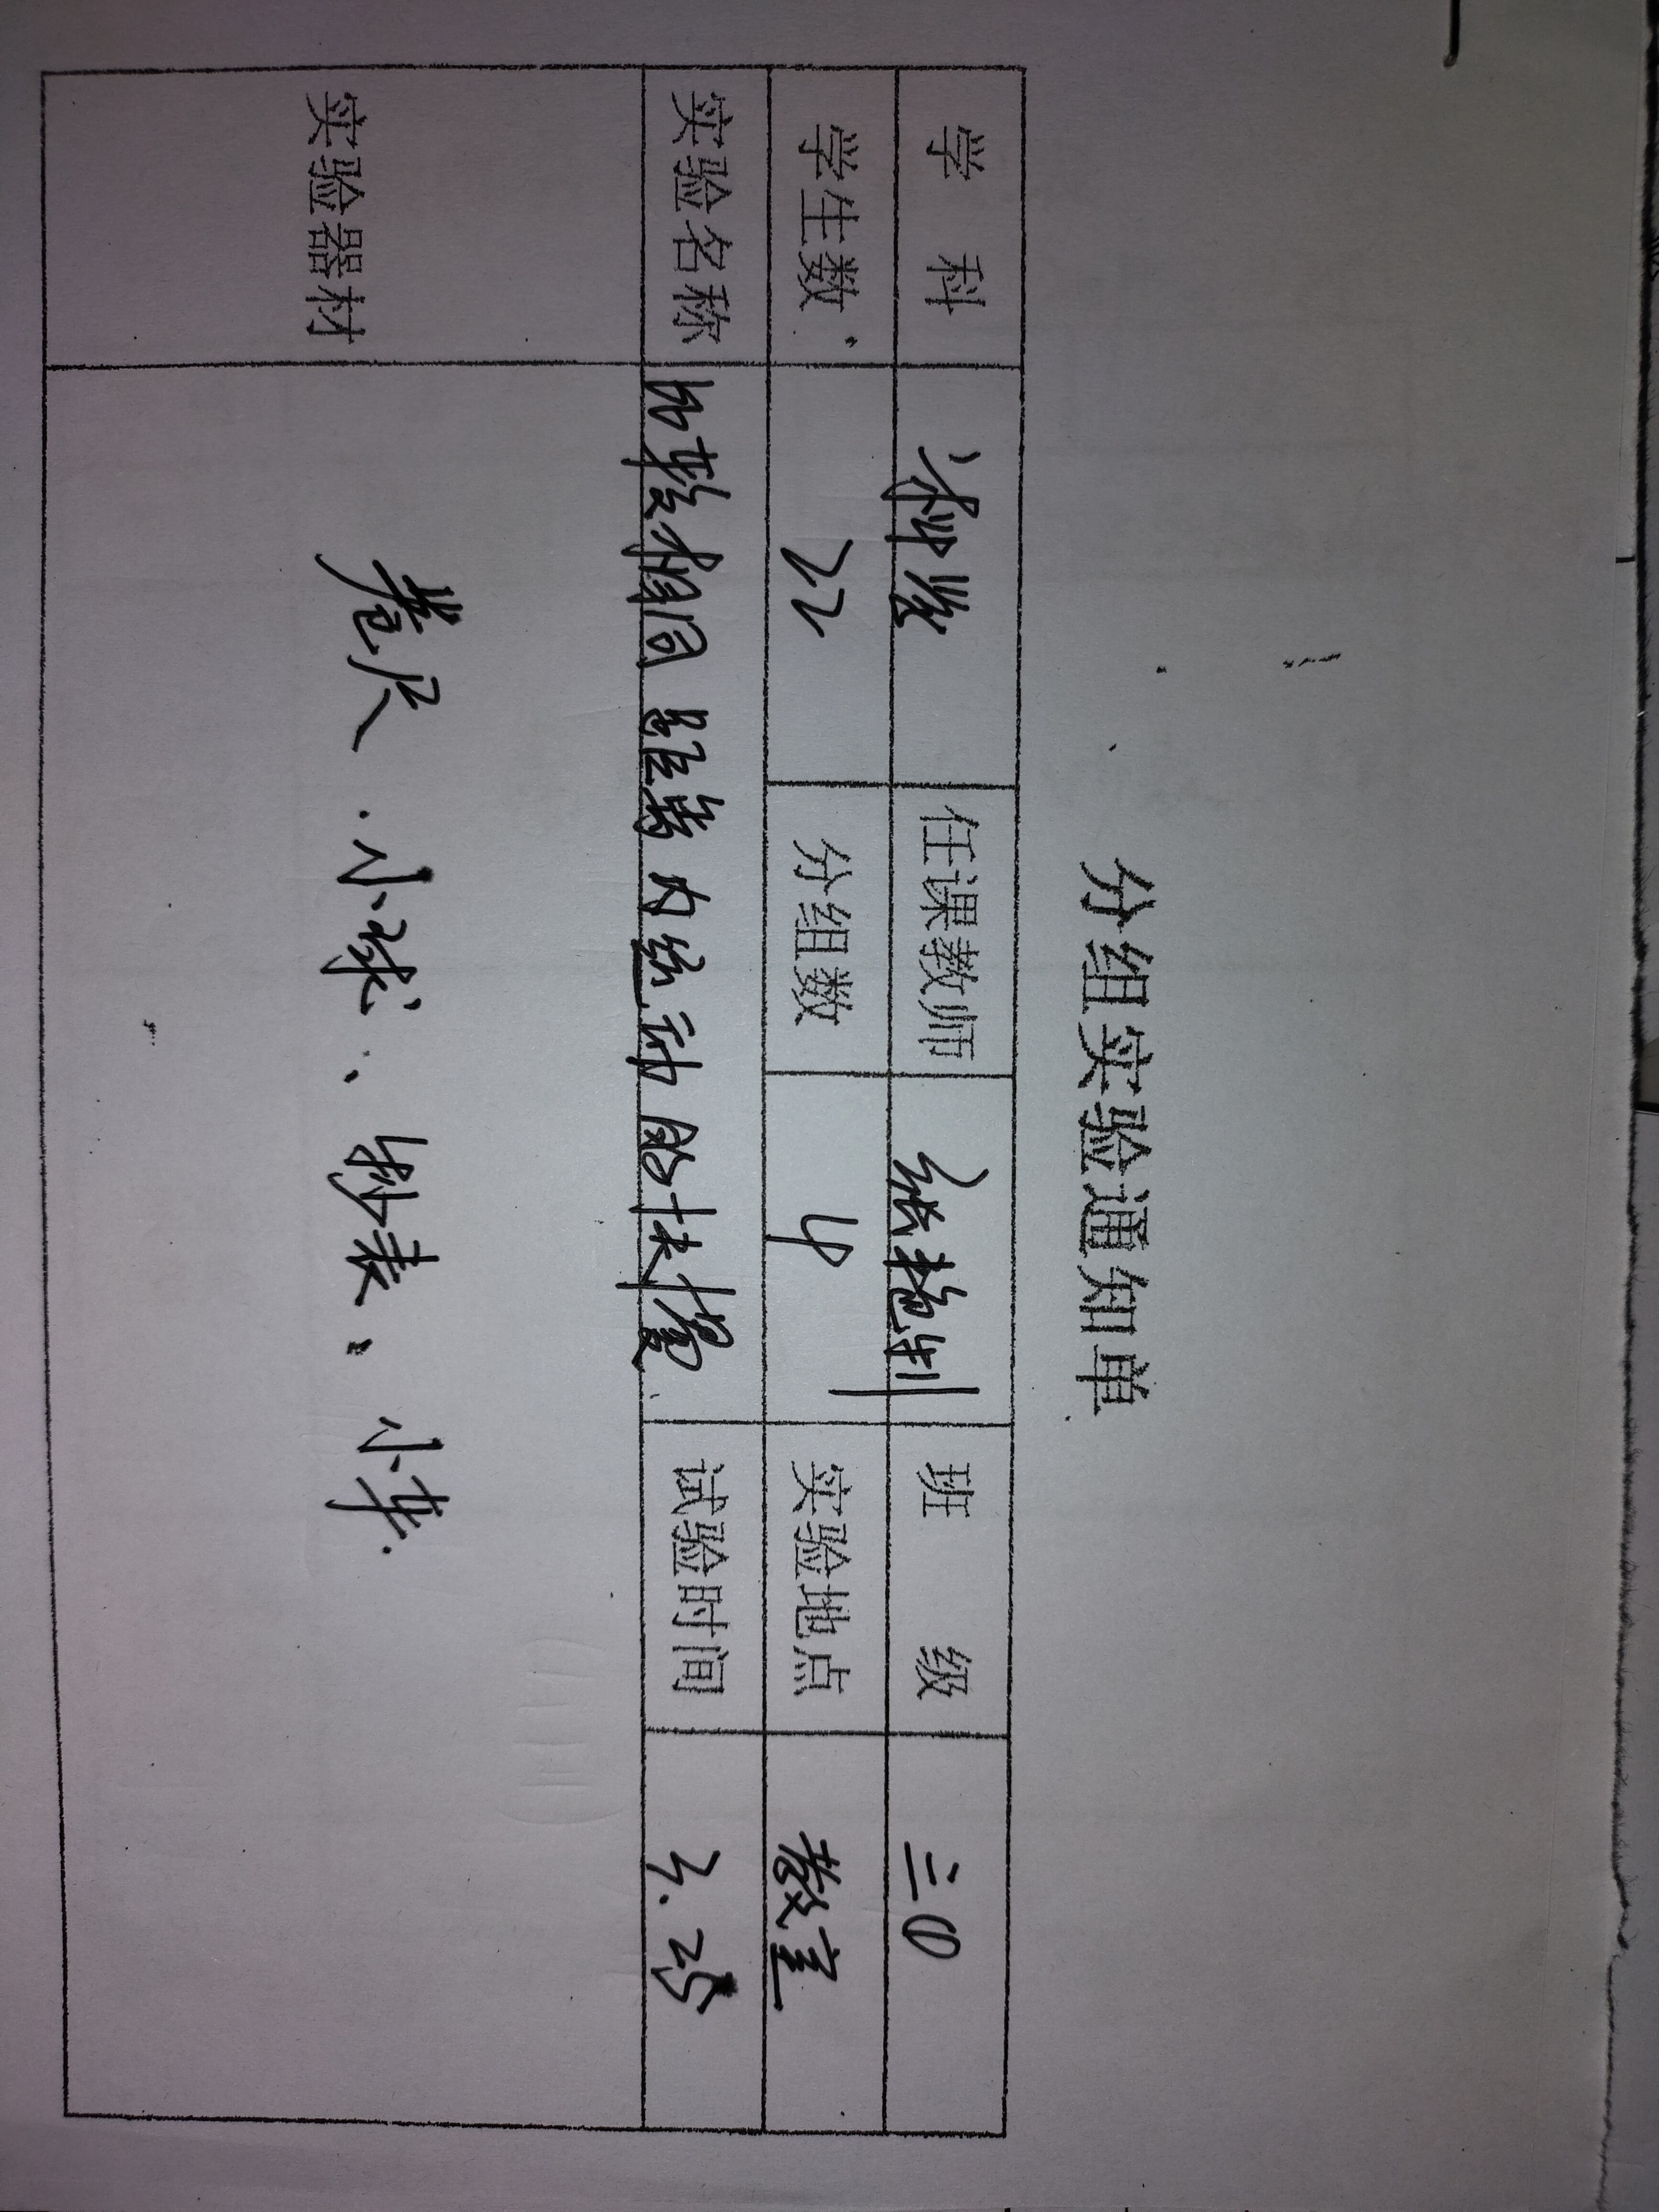 分组实验通知单
学 科 任课教师 张艳钊 班 级
学生数 22 分组数 4 实验地点 教室
实验名称 比较相同距离内运动的快慢 试验时间 3.25
实验器材 卷尺、小球、秒表、小车.